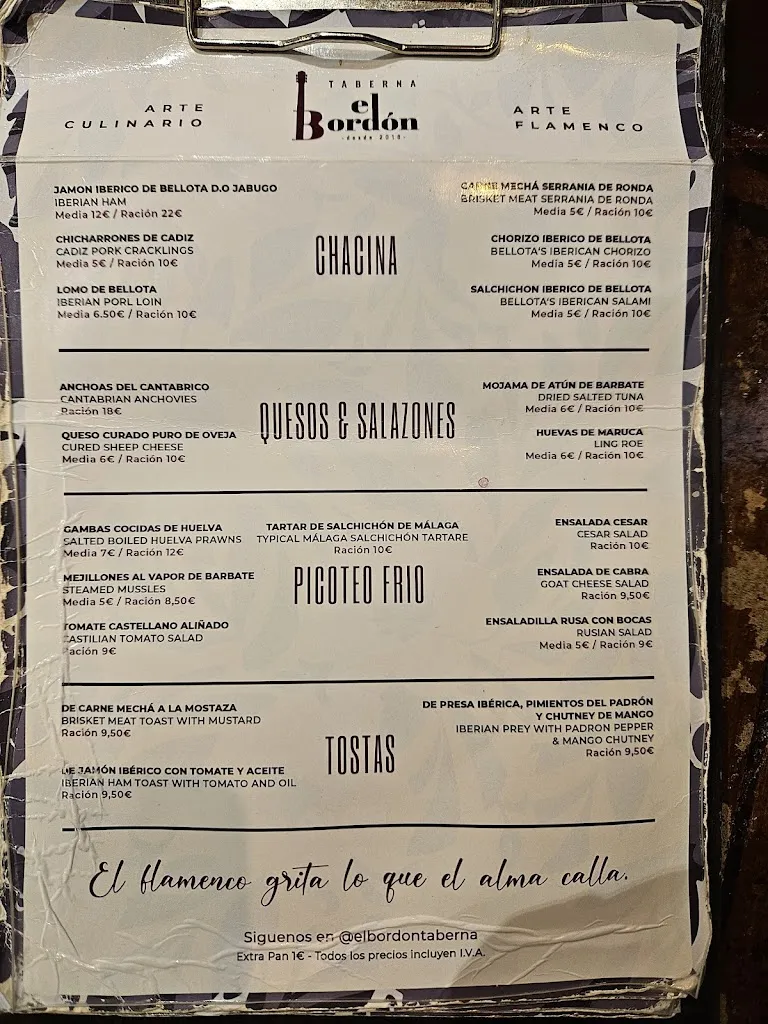 ARTE
CULINARIO
TABERNA
el
Bordón
-desde 2018-
ARTE
FLAMENCO
JAMON IBERICO DE BELLOTA D.O JABUGO
IBERIAN HAM
Media 12€ / Ración 22€
CHICHARRONES DE CADIZ
CADIZ PORK CRACKLINGS
Media 5€ / Ración 10€
LOMO DE BELLOTA
IBERIAN PORL LOIN
Media 6.50€ / Ración 10€
CHACINA
CARNE MECHÁ SERRANIA DE RONDA
BRISKET MEAT SERRANIA DE RONDA
Media 5€ / Ración 10€
CHORIZO IBERICO DE BELLOTA
BELLOTA'S IBERICAN CHORIZO
Media 5€ / Ración 10€
SALCHICHON IBERICO DE BELLOTA
BELLOTA'S IBERICAN SALAMI
Media 5€ / Ración 10€
ANCHOAS DEL CANTABRICO
CANTABRIAN ANCHOVIES
Ración 18€
QUESO CURADO PURO DE OVEJA
CURED SHEEP CHEESE
Media 6€ / Ración 10€
QUESOS & SALAZONES
MOJAMA DE ATÚN DE BARBATE
DRIED SALTED TUNA
Media 6€ / Ración 10€
HUEVAS DE MARUCA
LING ROE
Media 6€ / Ración 10€
GAMBAS COCIDAS DE HUELVA
SALTED BOILED HUELVA PRAWNS
Media 7€ / Ración 12€
MEJILLONES AL VAPOR DE BARBATE
STEAMED MUSSLES
Media 5€ / Ración 8,50€
TOMATE CASTELLANO ALIÑADO
CASTILIAN TOMATO SALAD
Ración 9€
TARTAR DE SALCHICHÓN DE MÁLAGA
TYPICAL MÁLAGA SALCHICHÓN TARTARE
Ración 10€
PICOTEO FRIO
ENSALADA CESAR
CESAR SALAD
Ración 10€
ENSALADA DE CABRA
GOAT CHEESE SALAD
Ración 9,50€
ENSALADILLA RUSA CON BOCAS
RUSIAN SALAD
Media 5€ / Ración 9€
DE CARNE MECHÁ A LA MOSTAZA
BRISKET MEAT TOAST WITH MUSTARD
Ración 9,50€
DE JAMÓN IBÉRICO CON TOMATE Y ACEITE
IBERIAN HAM TOAST WITH TOMATO AND OIL
Ración 9,50€
TOSTAS
DE PRESA IBÉRICA, PIMIENTOS DEL PADRÓN
Y CHUTNEY DE MANGO
IBERIAN PREY WITH PADRON PEPPER
& MANGO CHUTNEY
Ración 9,50€
El flamenco grita lo que el alma calla.
Siguenos en @elbordontaberna
Extra Pan 1€ - Todos los precios incluyen I.V.A.